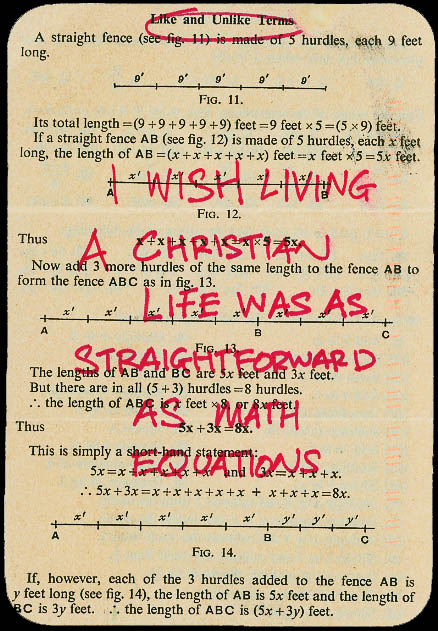 Like and Unlike Terms
A straight fence (see fig. 11) is made of 5 hurdles, each 9 feet
long.
9′ 9′ 9′ 9′ 9′
FIG. 11.
Its total length = (9+9+9+9+9) feet = 9 feet × 5 = (5 × 9) feet.
If a straight fence AB (see fig. 12) is made of 5 hurdles, each x feet
long, the length of AB = (x+x+x+x+x) feet = x feet × 5 = 5x feet.
I WISH LIVING
x′ x′ x′ x′ x′
A B
FIG. 12.
Thus x+x+x+x+x = x × 5 = 5x.
A CHRISTIAN
Now add 3 more hurdles of the same length to the fence AB to
form the fence ABC as in fig. 13.
LIFE WAS AS
x′ x′ x′ x′ x′ x′ x′ x′
A B C
FIG. 13.
STRAIGHTFORWARD
The lengths of AB and BC are 5x feet and 3x feet.
But there are in all (5+3) hurdles = 8 hurdles.
∴ the length of ABC is x feet × 8 or 8x feet.
AS MATH
Thus 5x+3x=8x.
This is simply a short-hand statement:
EQUATIONS
5x=x+x+x+x+x and 3x=x+x+x.
∴ 5x+3x=x+x+x+x+x + x+x+x=8x.
x′ x′ x′ x′ x′ y′ y′ y′
A B C
FIG. 14.
If, however, each of the 3 hurdles added to the fence AB is
y feet long (see fig. 14), the length of AB is 5x feet and the length of
BC is 3y feet. ∴ the length of ABC is (5x+3y) feet.